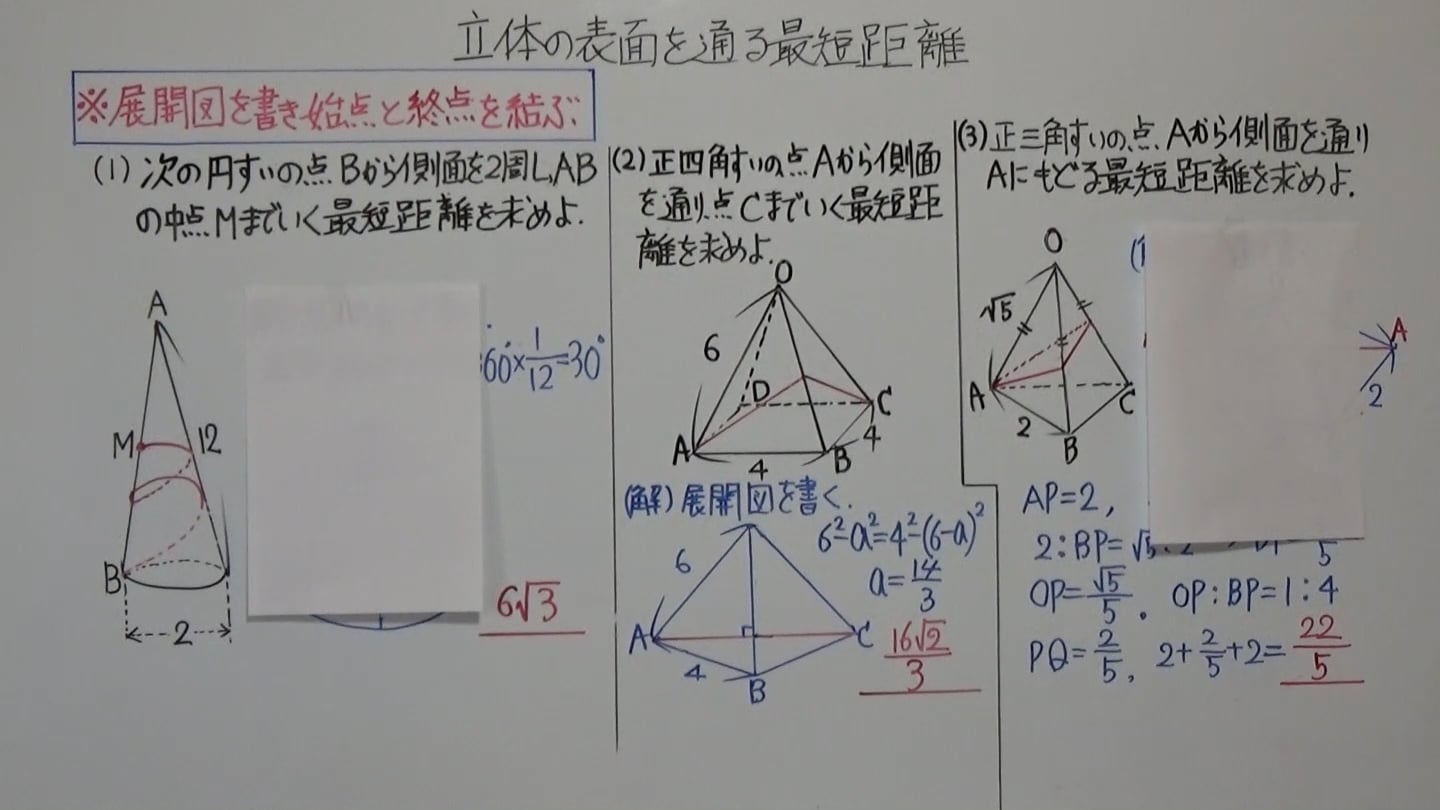 立体の表面を通る最短距離
※展開図を書き始点と終点を結ぶ
(1) 次の円すいの点Bから側面を2周し,AB
の中点Mまでいく最短距離を求めよ.
A
M
12
B
2
60°×1/12=30°
6√3
(2) 正四角すいの点Aから側面
を通り点Cまでいく最短距
離を求めよ.
O
6
D
A
C
4
B
4
(解) 展開図を書く.
6
A
C
4
B
6²-a²=4²-(6-a)²
a=14/3
16√2/3
(3) 正三角すいの点Aから側面を通り
Aにもどる最短距離を求めよ.
O
√5
A
C
2
B
A
2
AP=2,
2:BP=√5
5
OP=√5/5. OP:BP=1:4
PQ=2/5, 2+2/5+2=22/5